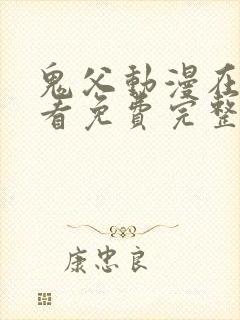 鬼父動漫在
看免費完整
康忠良